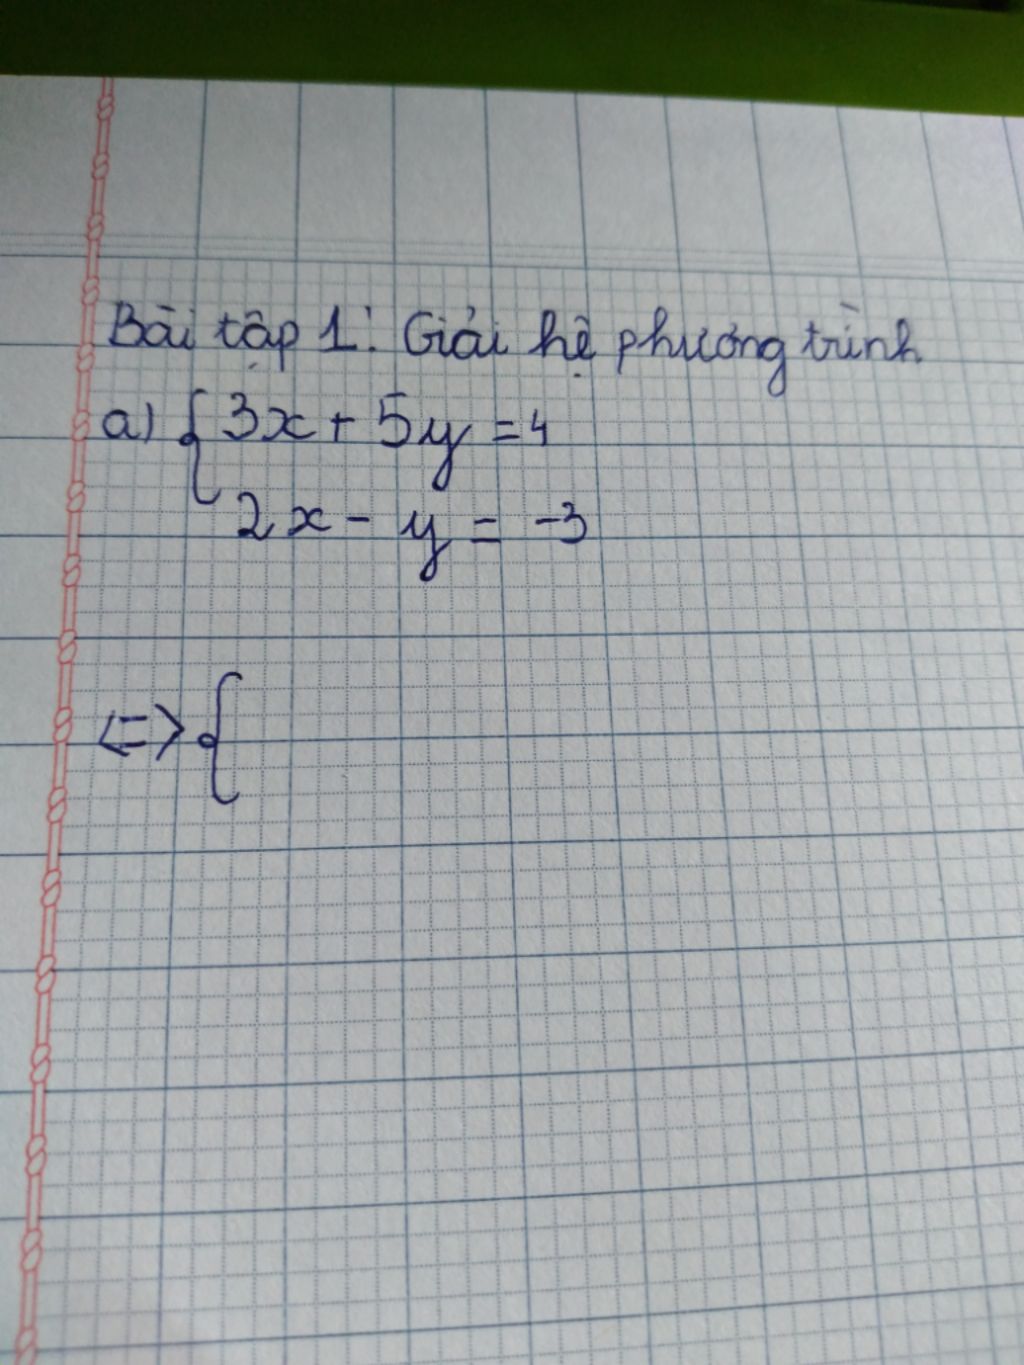 Bài tập 1: Giải hệ phương trình
a) { 3x + 5y = 4
2x - y = -3
<=> {